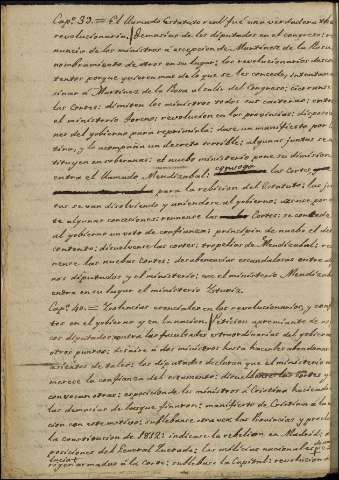 Cap.º 39. = El llamado Estatuto real fué una verdadera
revolucionaria. Demasias de los diputados en el congreso; re-
nuncia de los ministros á escepcion de Martinez de la Rosa
nombramiento de otros en su lugar; los revolucionarios descon-
tentos porque quieren mas de lo que se les concede, intentan
sinar á Martinez de la Rosa al salir del Congreso; cierranse
las Cortes: dimiten los ministros todos sus carteras; entra
el ministerio Toreno; revolucion en las provincias; disposicio-
nes del gobierno para reprimirla; dase un manifiesto por
tino, y lo acompaña un decreto terrible; algunas juntas se
tituyen en soberanas; el nuebo ministerio pone su dimision
entra el llamado Mendizabal; las Cortes
para la rebision del Estatuto; las jun-
tas se van disolviendo y uniendose al gobierno; ecsice por
te algunas concesiones; reunense las Cortes; se concede
al gobierno un voto de confianza; principia de nuebo el des-
contento; disuelvense las cortes; tropelias de Mendizabal; re-
unense las nuebas Cortes; desabenencias escandalosas entre
nos diputados y el ministerio; cae el ministerio Mendizabal
entra en su lugar el ministerio Isturiz.
Cap.º 40. = Violencias
tos en el gobierno y en la nacion. Peticion apremiante de va-
rios diputados contra las facultades estraordinarias del gobierno
otros puntos; desaire á dos ministros hasta hacerles abandonar
asientos de tales; los diputados declaran que el ministerio no
merece la confianza del estamento; las cortes y
convocan otras; esposicion de los ministros á Cristina haciendo
las demasias de los que finaron; manifiesto de Cristina á la na-
cion con este motivo; sublebanse otra vez las Provincias y procla-
la constitucion de 1812: indicase la rebelion en Madrid;
posiciones del General Quesada; las milicias nacionales
armados á la corte; sublebase la Capital; revolucion